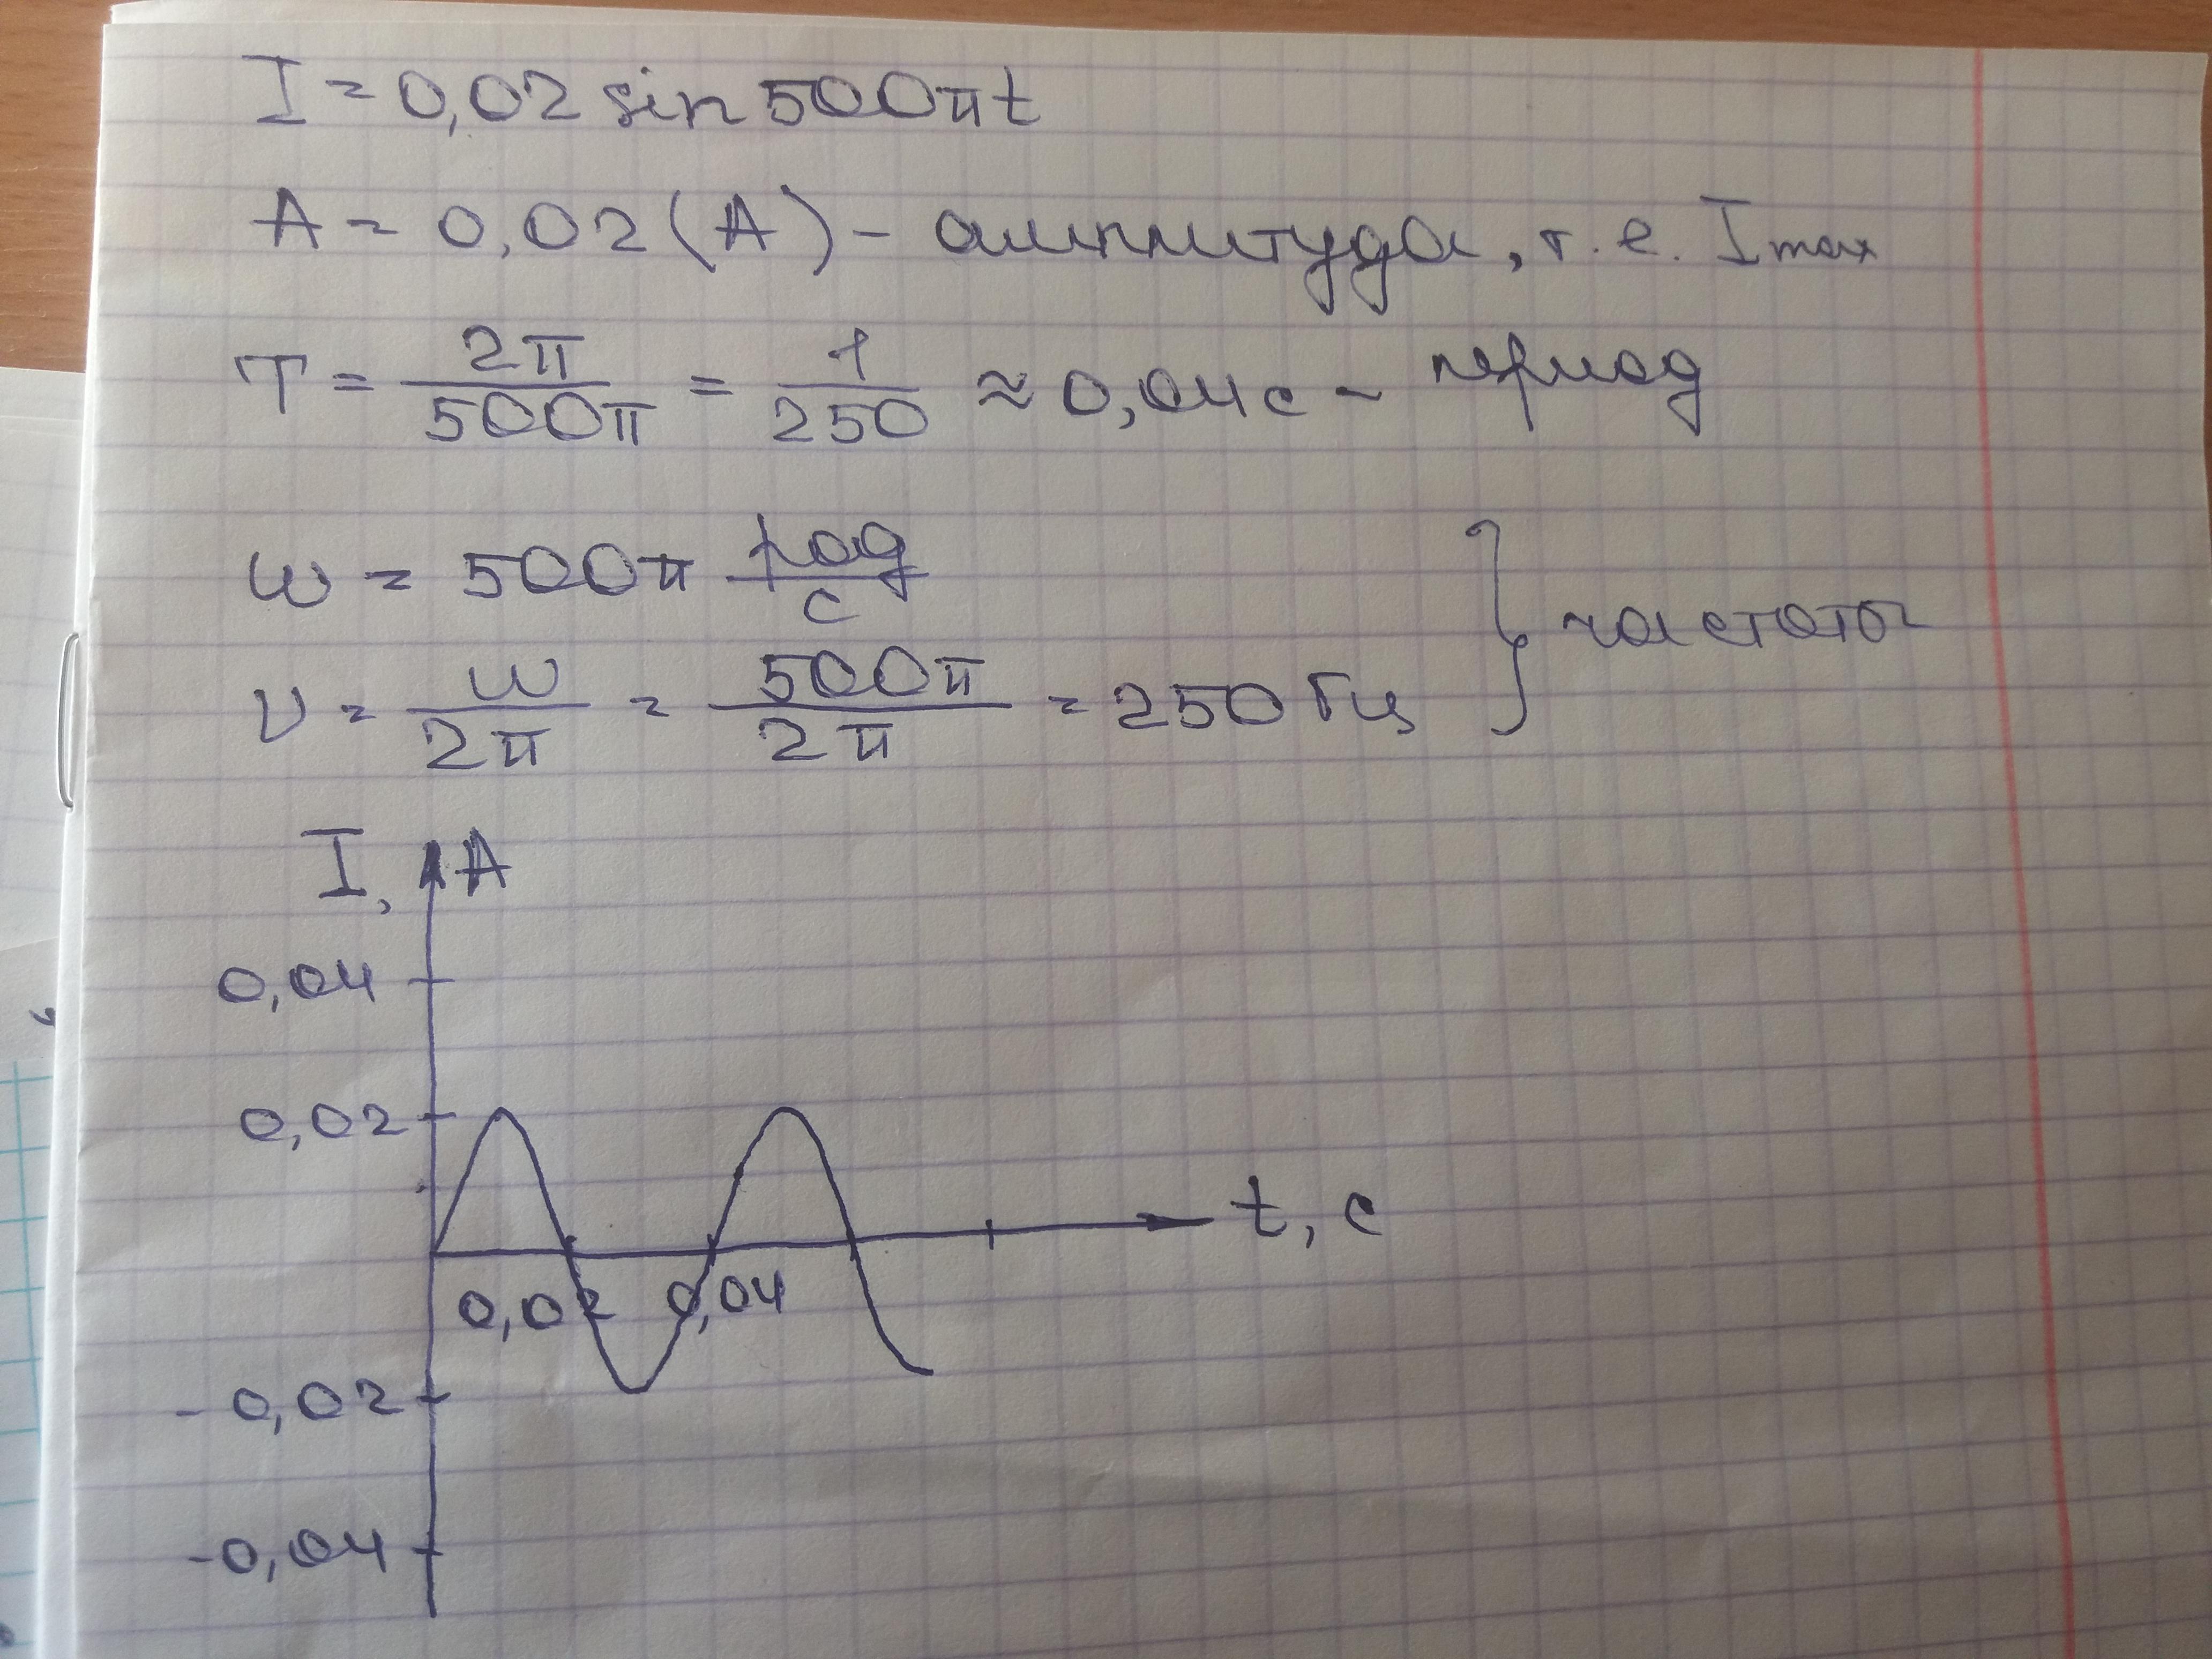 I = 0,02 sin 500πt
A = 0,02 (A) - амплитуда, т.е. Imax
T = 2π/500π = 1/250 ≈ 0,04с - период
ω = 500π рад/с
ν = ω/2π = 500π/2π = 250 Гц } частоты
I, A
0,04
0,02
t, с
0,02 0,04
-0,02
-0,04